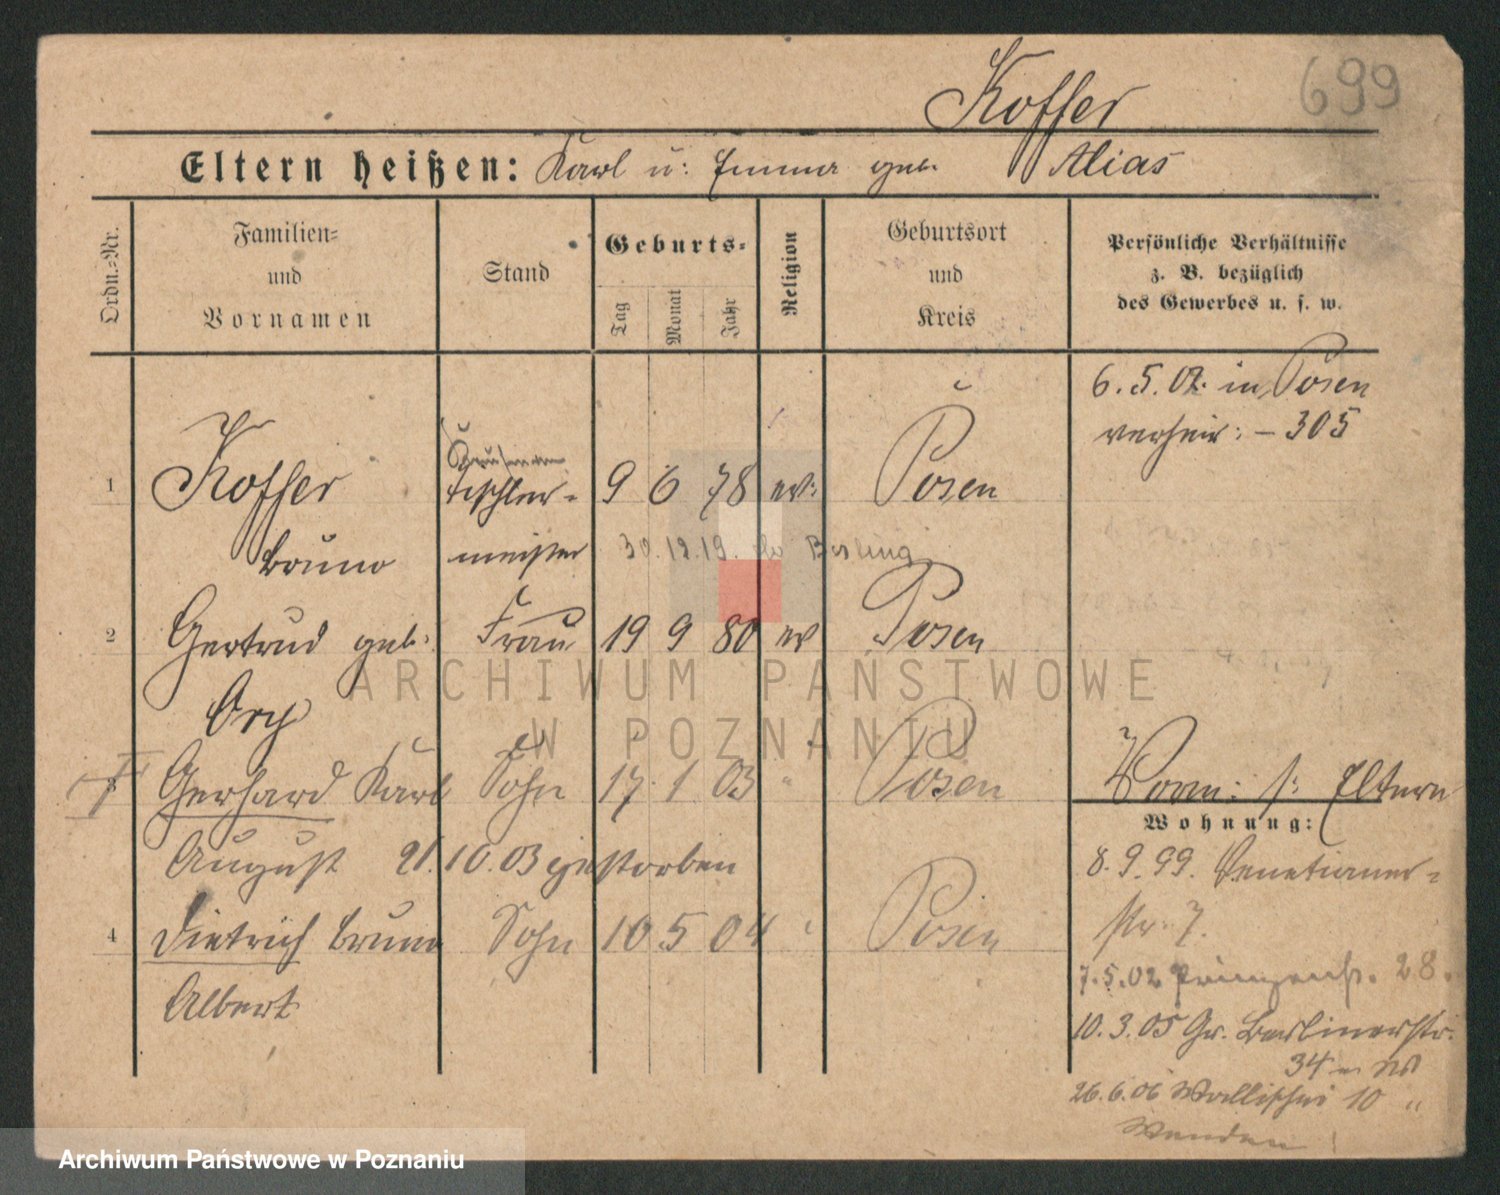 699
Koffer
Eltern heißen: Karl u: Emma geb. Alias
Ordn.-Nr.
Familien- und Vornamen
Stand
Geburts-
Tag
Monat
Jahr
Religion
Geburtsort und Kreis
Persönliche Verhältnisse
z. B. bezüglich
des Gewerbes u. s. w.
6.5.02. in Posen
verheir: – 305
1 Koffer Tischler- 9 6 78 ev: Posen
Bruno meister 30.12.19.
2 Gertrud geb: Frau 19 9 80 ev Posen
Ory
3 Gerhard Karl Sohn 17. 1 03 " Posen
August 21.10.03 gestorben
4 Dietrich Bruno Sohn 10 5 04 Posen
Albert
Vorm: s: Eltern
Wohnung:
8.9.99. Venetianer-
str. 7.
7.5.02 Prinzenstr. 28.
10.3.05 Gr. Berlinerstr.
34
26.6.06 Wallischei 10 "
Wenden!
ARCHIWUM PAŃSTWOWE
W POZNANIU
Archiwum Państwowe w Poznaniu